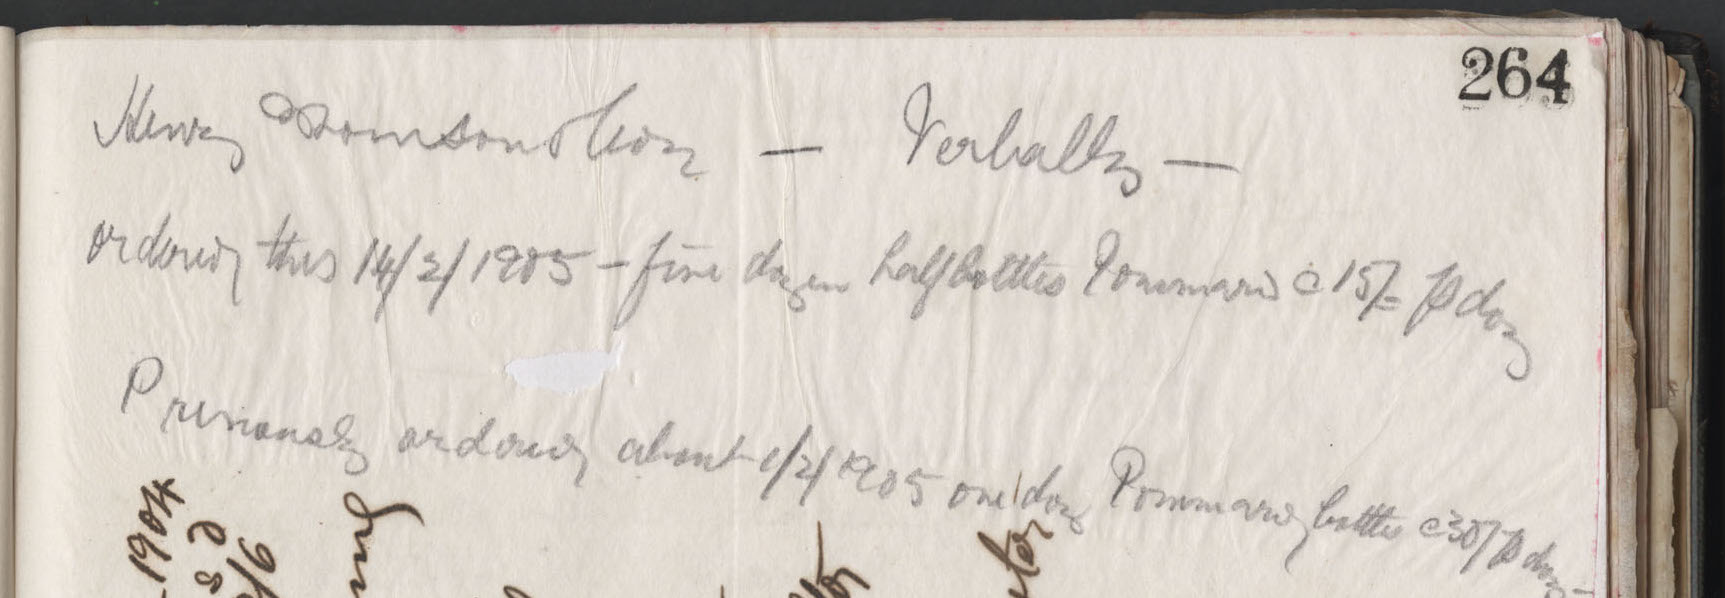 264
Henry Thomson & Coy — Verbally —
ordered this 14/2/1905 – five dozen half bottles Pommard @ 15/= p doz
Previously ordered about 1/2/1905 one doz Pommard bottles @ 30/ p doz
1904